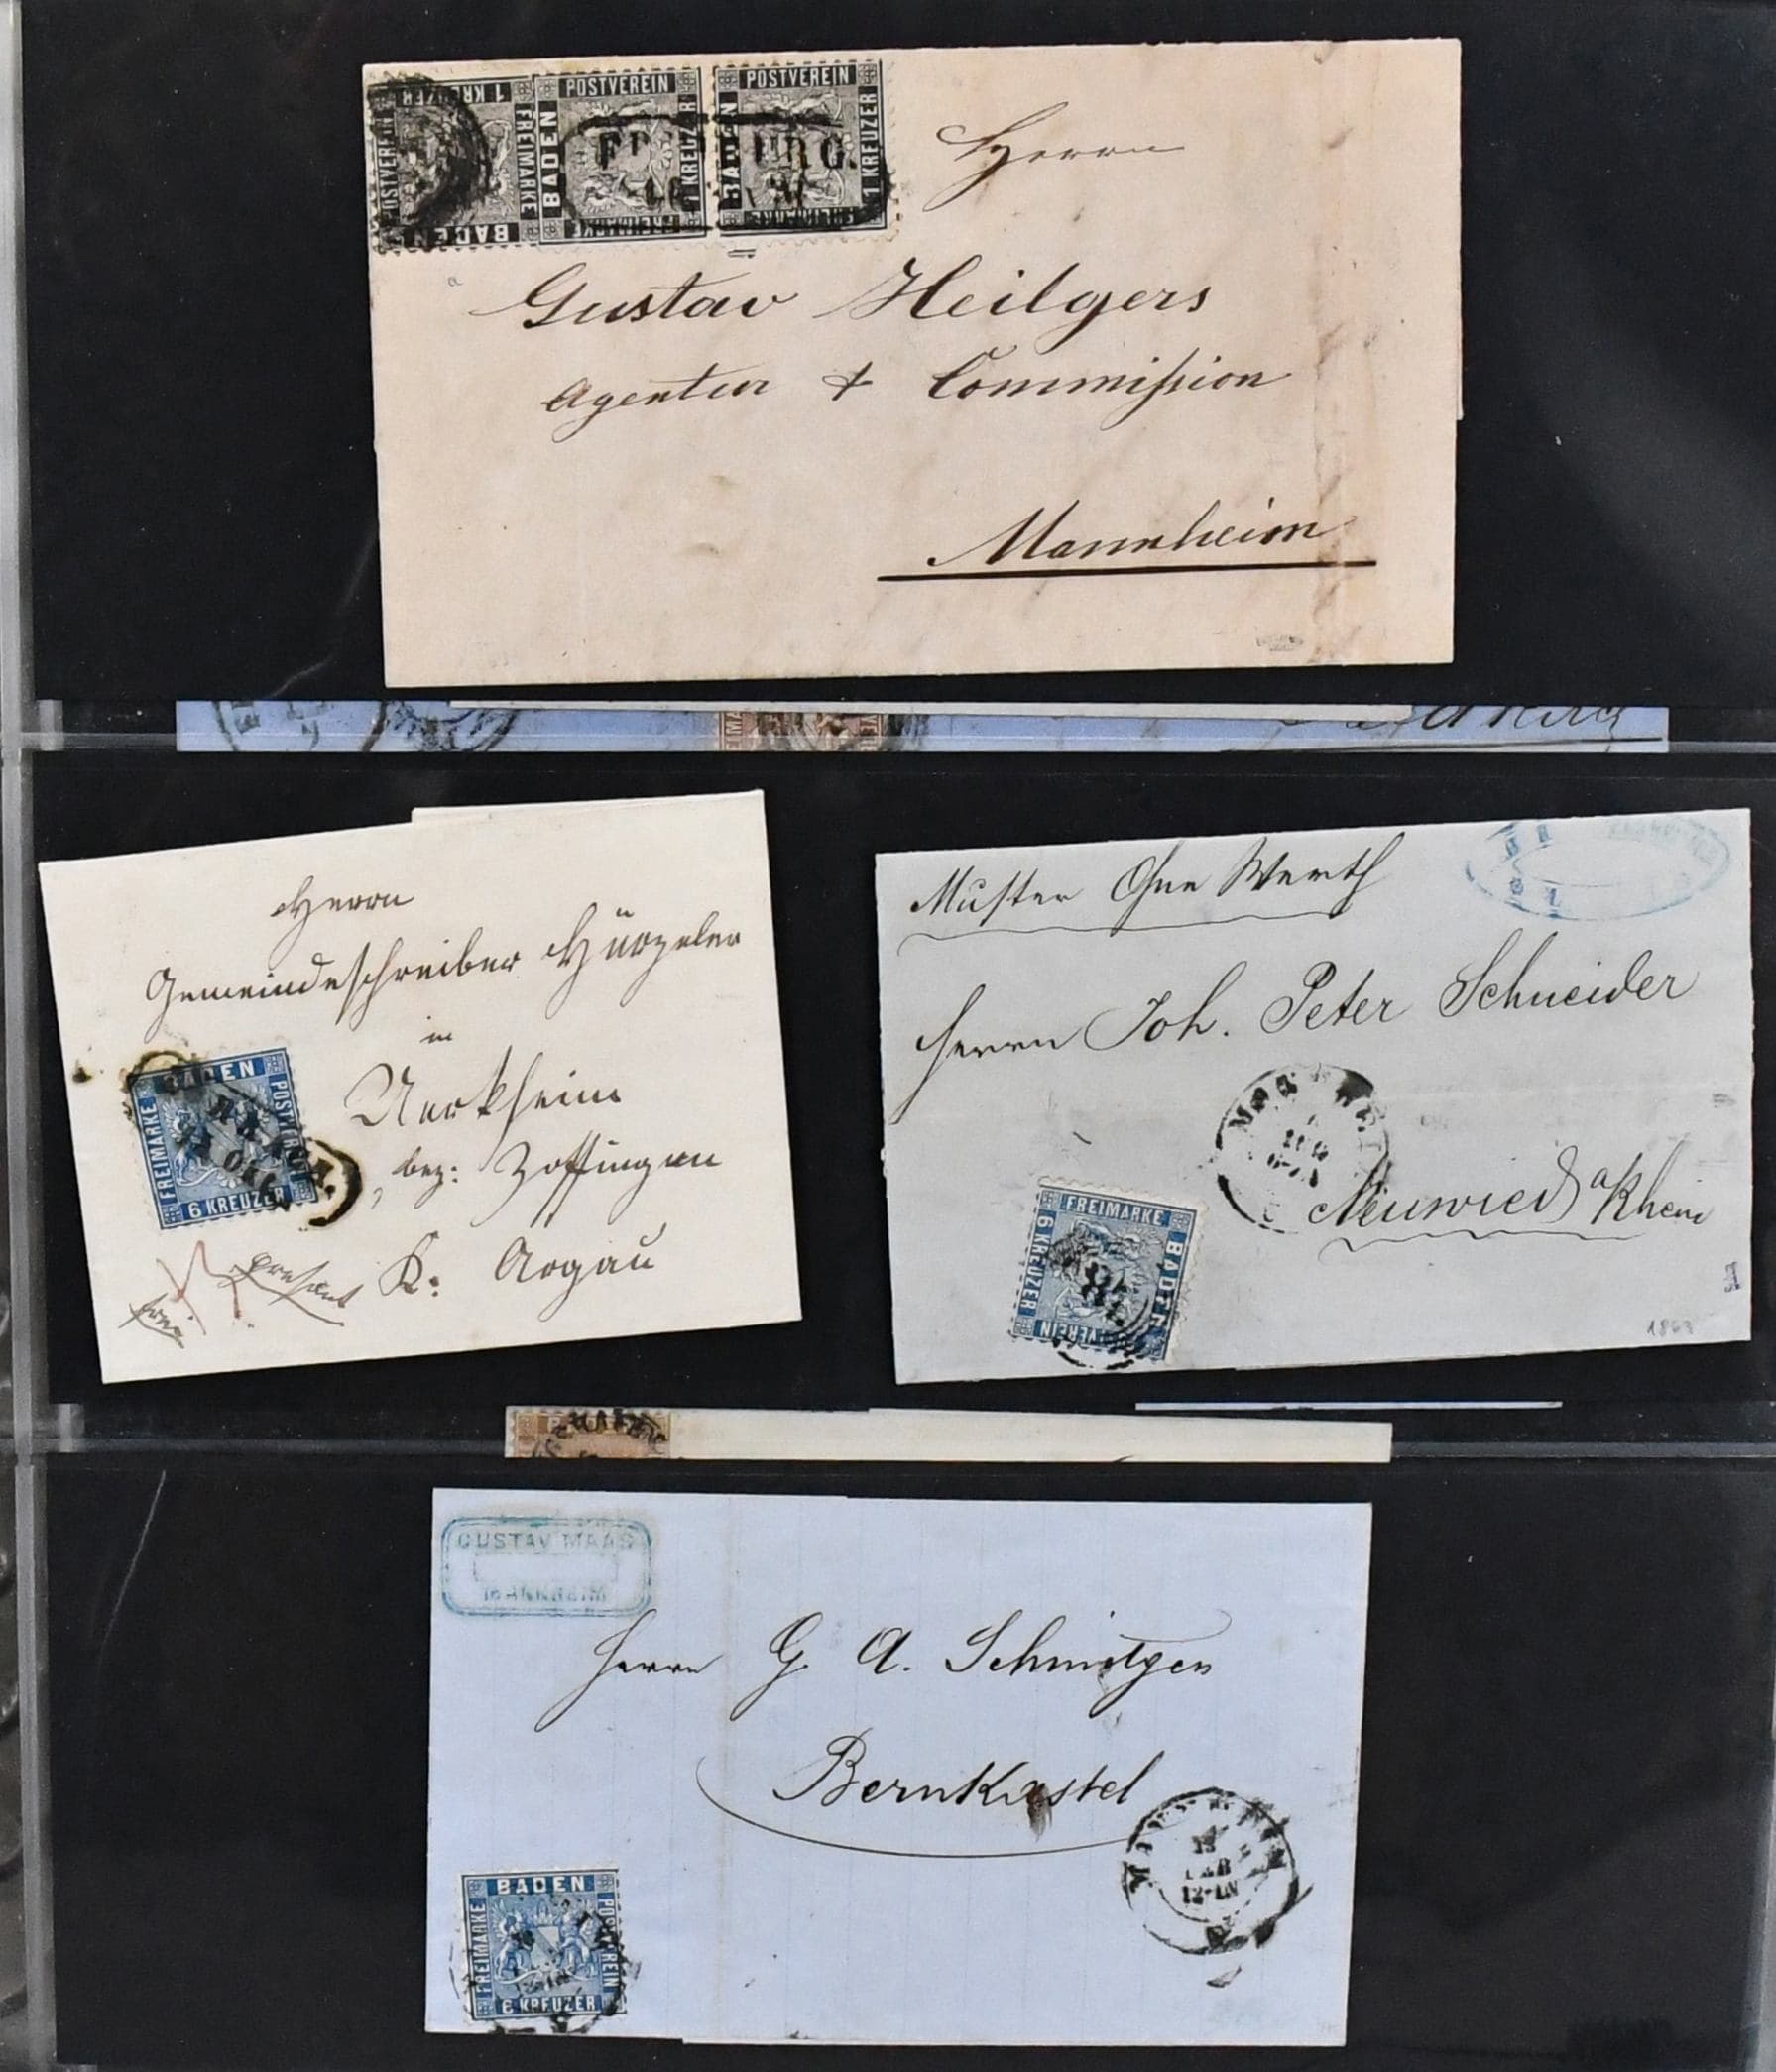 POSTVEREIN
1 KREUZER
FREIMARKE
BADEN
POSTVEREIN
BADEN
1 KREUZER
FREIMARKE
POSTVEREIN
BADEN
1 KREUZER
FREIMARKE
Herrn
Gustav Heilgers
Agentur & Commission
Mannheim
Herrn
Gemeindeschreiber Hürzeler
in
Uerkheim
bez: Zoffingen
K: Argau
BADEN
FREIMARKE
POSTVEREIN
6 KREUZER
Muster Ohne Werth
Herrn Joh. Peter Schneider
Neuwied a/Rhein
FREIMARKE
6 KREUZER
BADEN
VEREIN
1863
GUSTAV MAAS
MANNHEIM
Herrn G. A. Schmitgen
Bernkastel
MANNHEIM
13
FEB
BADEN
FREIMARKE
POSTVEREIN
6 KREUZER